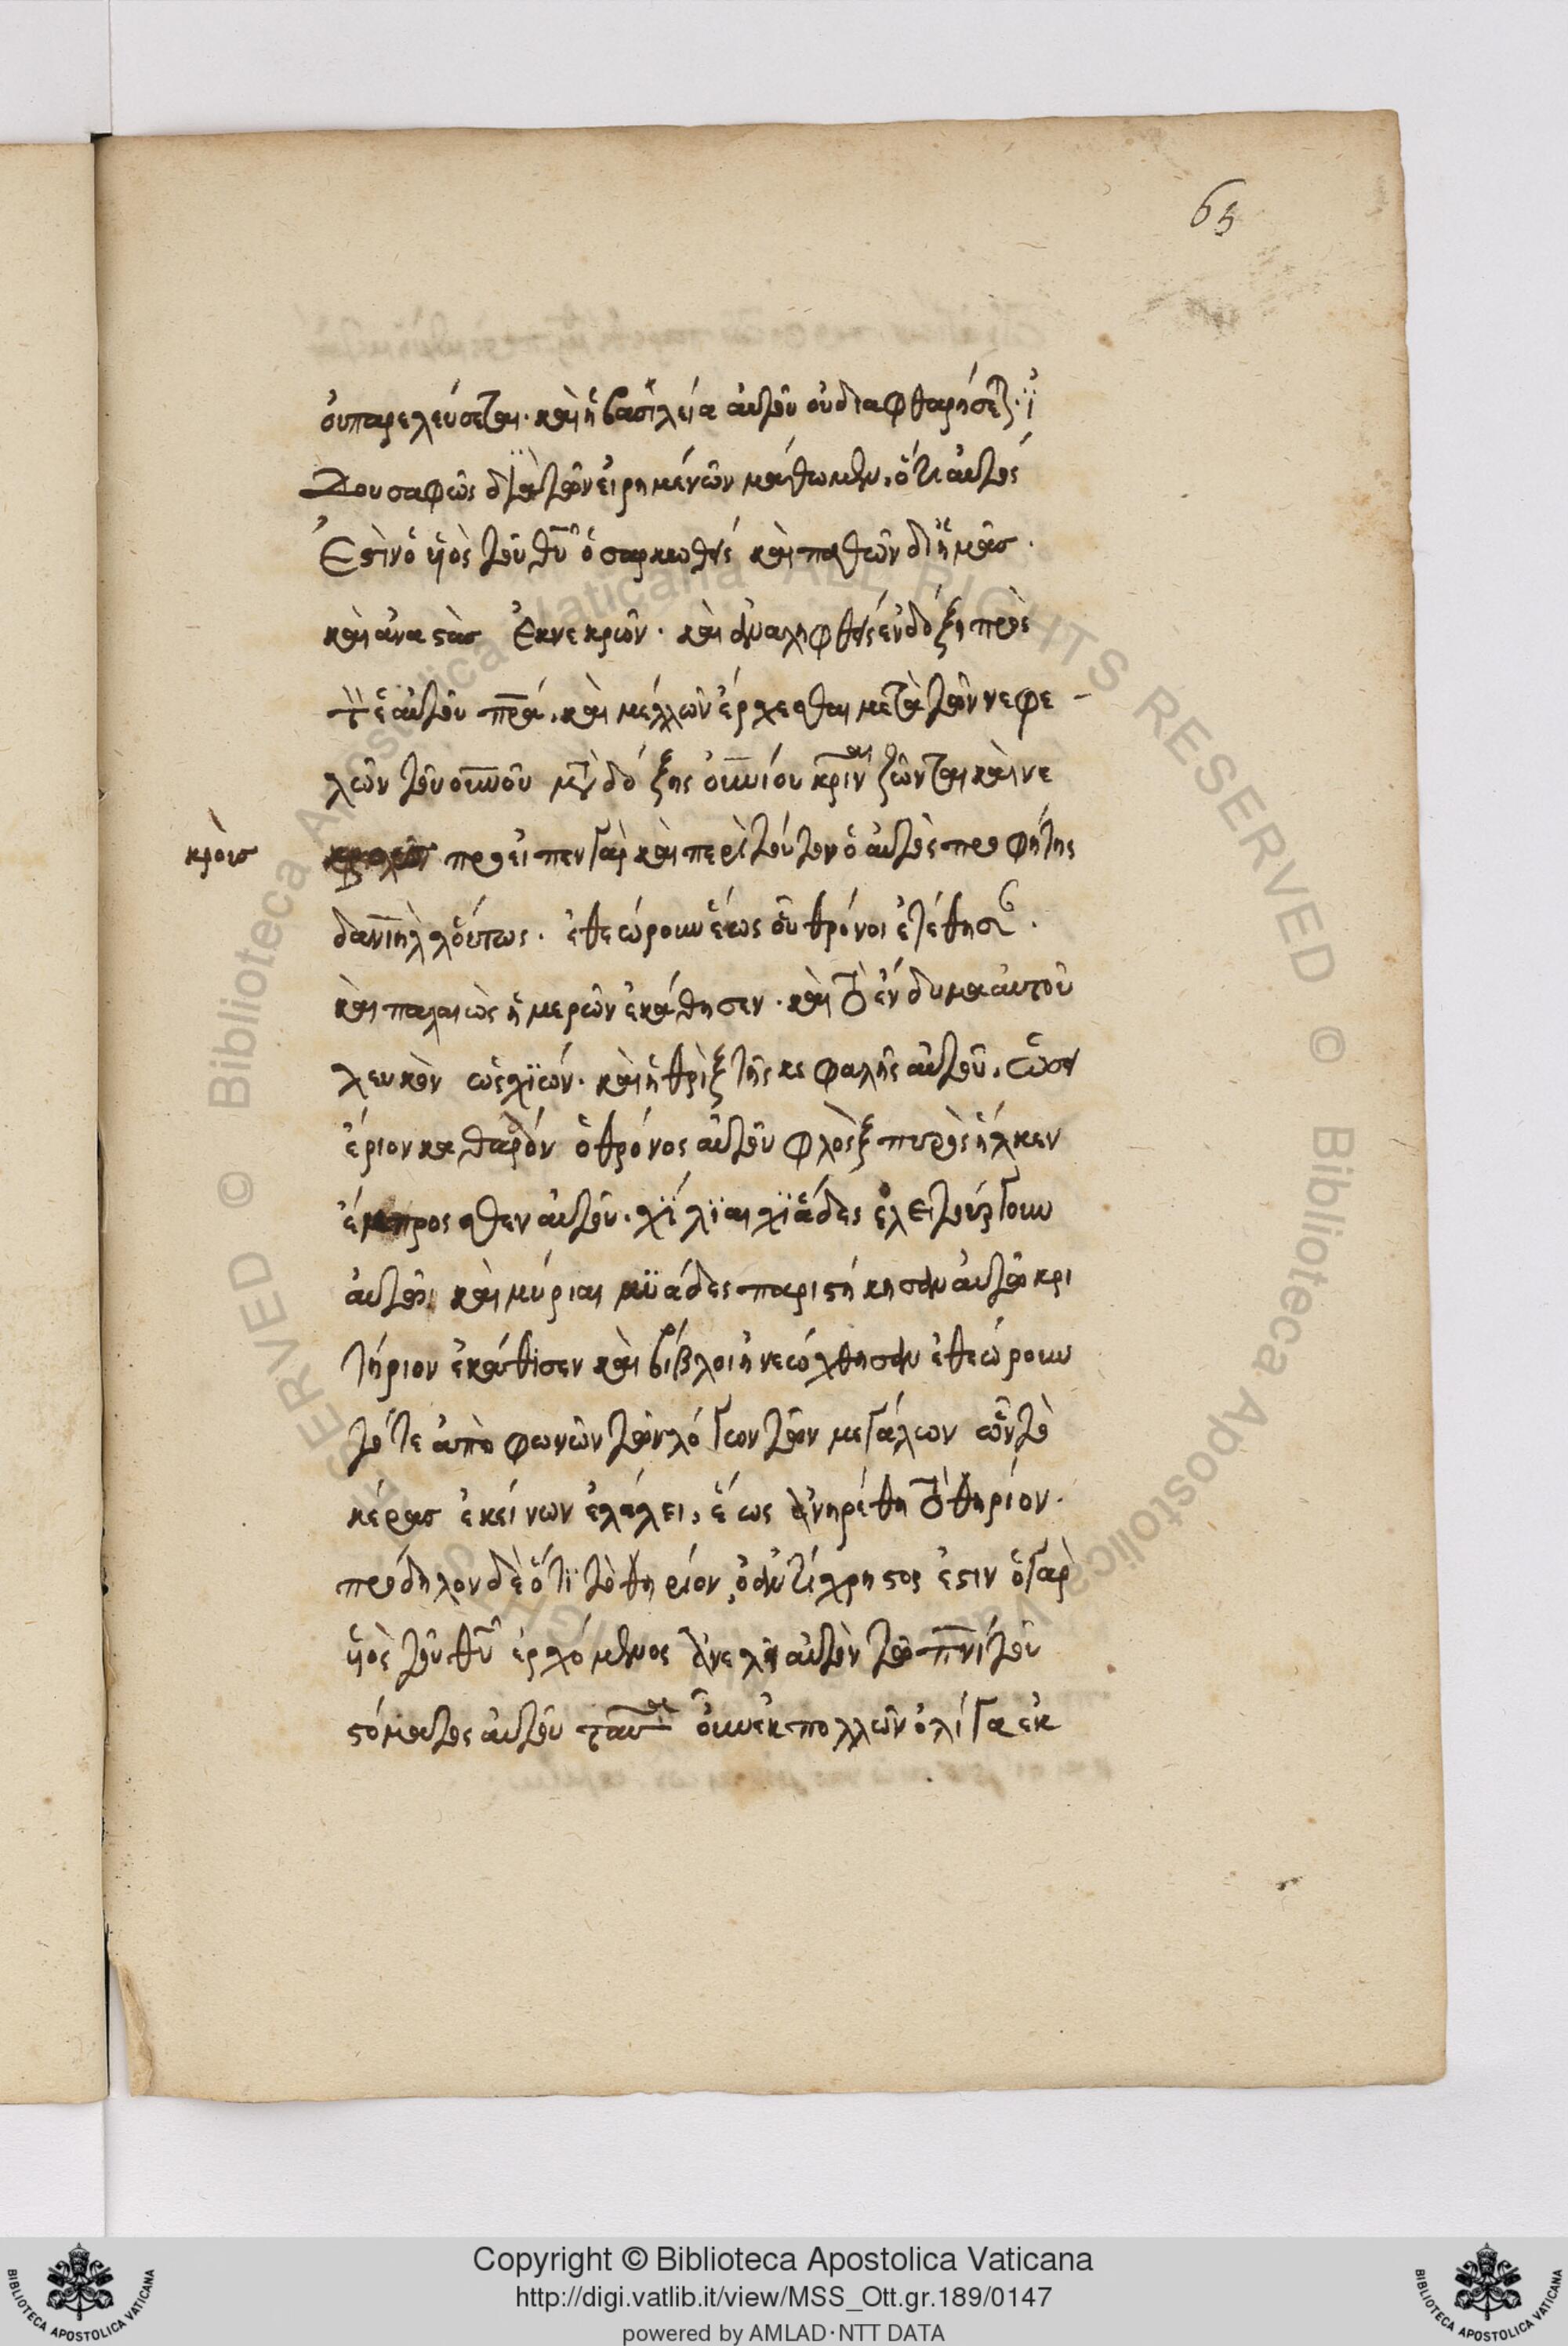 65
οὐ παρελεύσεται· καὶ ἡ βασιλεία αὐτοῦ οὐ διαφθαρήσεται· ἰ
δοὺ σαφῶς διὰ τῶν εἰρημένων μάθωμεν, ὅτι αὐτός
ἐστὶν ὁ υἱὸς τοῦ θυ ὁ σαρκωθεὶς καὶ παθὼν δι ἡμᾶς·
καὶ ἀναστὰς ἐκ νεκρῶν· καὶ ἀναληφθεὶς ἐν δόξῃ πρὸς
τὸν ἑαυτοῦ πρα, καὶ μέλλων ἔρχεσθαι μετὰ τῶν νεφε
λῶν τοῦ οὐνοῦ μετὰ δόξης οὐνίου κρῖναι ζῶντας καὶ νε
κροὺς προεῖπεν γὰρ καὶ περὶ τούτου ὁ αὐτὸς προφήτης
δανιὴλ οὕτως· ἐθεώρουν ἕως οὗ θρόνοι ἐτέθησαν·
καὶ παλαιὸς ἡμερῶν ἐκάθησεν· καὶ τὸ ἔνδυμα αὐτοῦ
λευκὸν ὡς χϊών· καὶ ἡ θρὶξ τῆς κεφαλῆς αὐτοῦ, ὡσεὶ
ἔριον καθαρόν ὁ θρόνος αὐτοῦ φλὸξ πυρὸς εἷλκεν
ἔμπροσθεν αὐτοῦ· χΐλϊαι χϊάδες ἐλειτούργουν
αὐτῷ καὶ μύριαι μϋάδες παριστήκησαν αὐτῷ κρι
τήριον ἐκάθισεν καὶ βίβλοι ἠνεώχθησαν ἐθεώρουν
τότε ἀπὸ φωνῶν τῶν λόγων τῶν μεγάλων ὧν τὸ
κέρας ἐκείνων ἐλάλει, ἕως ἀνηρέθη τὸ θηρίον·
πρόδηλον δὲ ὅτϊ τὸ θηρίον, ὁ ἀντίχρηστος ἐστιν ὁ γὰρ
υἱὸς τοῦ θυ ἐρχόμενος ἀνελεῖ αὐτὸν τῷ πνι τοῦ
στόματος αὐτοῦ ταῦτα οὖν ἐκ πολλῶν ὀλίγα ἐκ
κροὺς
Copyright © Biblioteca Apostolica Vaticana
http://digi.vatlib.it/view/MSS_Ott.gr.189/0147
powered by AMLAD·NTT DATA
BIBLIOTECA APOSTOLICA VATICANA
BIBLIOTECA APOSTOLICA VATICANA